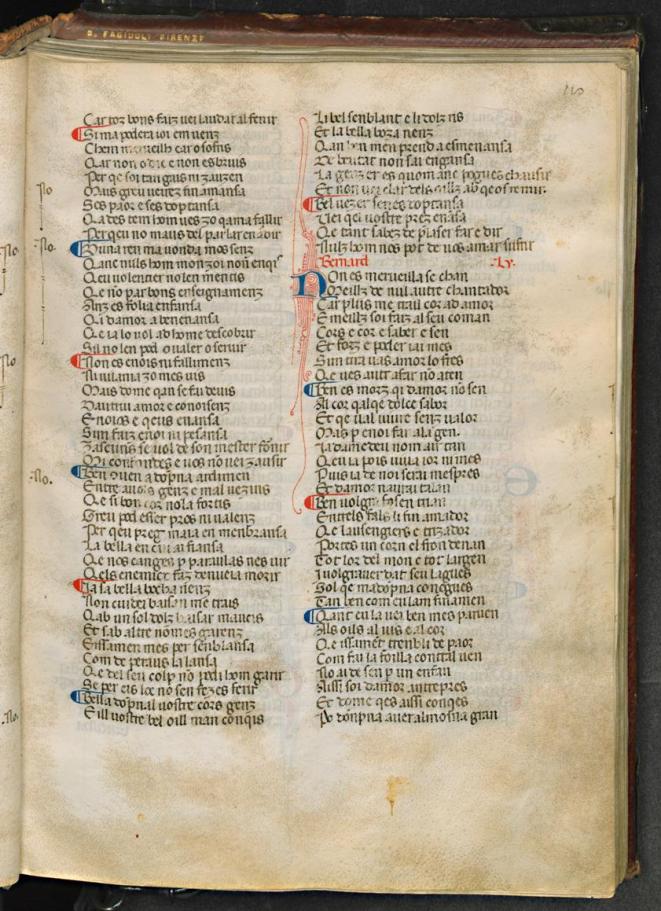 B. FAGIUOLI FIRENZE
Car toz bons faiz uei laudar al fenir
Si ma podera ioi em uenz
Chem meraueilh car o sofris
Qar non o die e non esbruis
Per qe soi tan guis ni iauzen
Mais greu ueirez fin amansa
Ses paor e ses doptansa
Q ades tem hom ues zo qama fallir
Perqeu no maus del parlar enardir
Duna ren ma uonda mos senz
Qanc nuls hom mon ioi non enqis
Qeu uolentier no len mentis
Qe no par bons enseignamenz
Anz es folia enfansa
Qi damor a benenansa
Qe ia lo uol ad home descobrir
Si no len pod o ualer o seruir
Non es enois ni fallimenz
Ni uilania zo mes uis
Mais dome qan se fa deuis
Dautrui amor e conoisenz
Enoios e qeus enansa
Sim faiz enoi ni pesansa
Ben ouen a dopna ardimen
Entre auols genz e mal uezins
Qe si bon cor no la fortis
Greu pod esser pros ni ualenz
Per qeu preg maia en menbransa
La bella en cui ai fiansa
Qe nos cange p paraulas nes uir
Qels enemics faz denueia morir
Ia la bella bocha rienz
Non cuidei baisan me trais
Qab un sol dolz baisar maucis
Et sab altre no mes garenz
Eissamen mes per senblansa
Com de peraus la lansa
Qe del seu colp no podi hom garir
Se per eis loc no sen fezes ferir
Bella dopnal uostre cors genz
Eill uostre bel oill man conqis
Li bel senblant e li dolz ris
Et la bella boza rienz
Qan ben men prend a esmenansa
De beutat non sai engansa
La genzer es quom anc pogues chausir
Et non uez clar dels oillz ab qeos remir
Bel uezer senes doptansa
Uei qel uostre prez enansa
Qe tant sabez de plaser far e dir
Nulz hom nos pot de uos amar sufrir
Bernard .ly.
Non es merueilla se chan
Meillz de nul autre chantador
Car plus me trai cor ad amor
E meillz soi faiz al seu coman
Cors e cor e saber e sen
Et forz e poder iai mes
Sim tira uas amor lo fres
Qe ues autr afar no aten
Ben es morz qi damor no sen
Al cor qalqe dolce sabor
Et qe ual uiure senz ualor
Mas p enoi far ala gen.
Ia damedeu nom air tan
Qeu ia pois uiua ior ni mes
Puis ia de noi serai mespres
Et damor naurai talan
Ben uolgra fosen trian
Entrels fals li fin amador
Qe lausengiers e trizador
Portes un corn el fron denan
Tot lor del mon e tot largen
I uolgrauer dat seu lagues
Sol qe ma dopna conegues
Tan ben com eu lam finamen
Qant eu la uei ben mes paruen
Als oils al uis e al cor
Qe issamet trenbli de paor
Com fai la foilla contral uen
No ai de sen p un enfan
Aissi soi damor antrepres
Et dome qes aissi conqes
Po donpna auer almosna gran